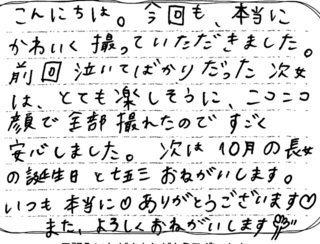 こんにちは。今回も、本当に
かわいく撮っていただきました。
前回泣いてばかりだった次女
は、とても楽しそうに、ニコニコ
顔で全部撮れたのですごく
安心しました。次は10月の長女
の誕生日と七五三おねがいします。
いつも本当に♡ありがとうございます♡
また、よろしくおねがいします